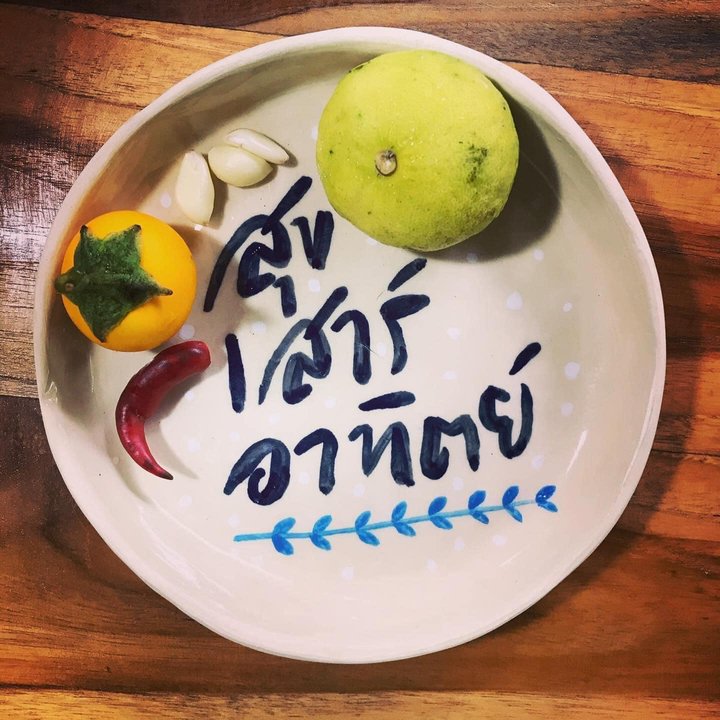 สุข
เสาร์
อาทิตย์